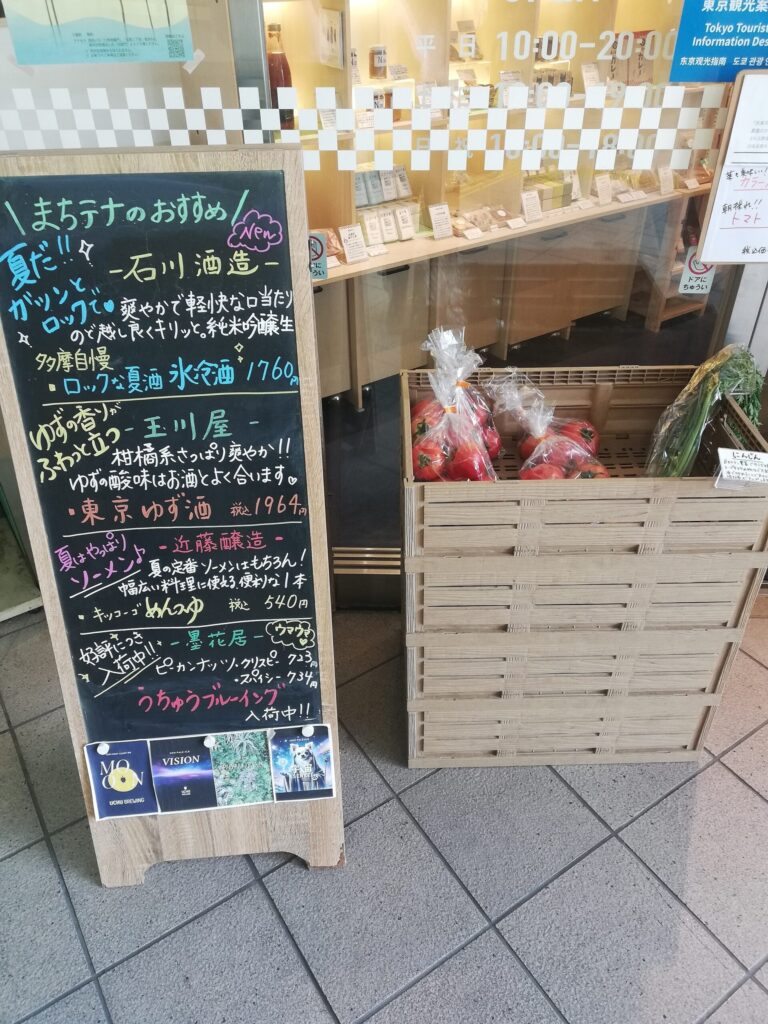 \まちテナのおすすめ/
New
夏だ!!
ガツンと
ロックで
-石川酒造-
爽やかで軽快な口当たり
ので越し良くキリッと。純米吟醸生
多摩自慢
・ロックな夏酒 氷冷酒 1760円
ゆずの香りが
ふわっと立つ
-玉川屋-
柑橘系さっぱり爽やか!!
ゆずの酸味はお酒とよく合います
・東京ゆず酒 税込 1964円
夏はやっぱり
ソーメン♪
-近藤醸造-
夏の定番ソーメンはもちろん!
幅広い料理に使える便利な1本
・キッコーゴ めんつゆ 税込 540円
好評につき
入荷中!!
-墨花居-
ウマウマ
ピーカンナッツ・クリスピー 723円
・スパイシー 734円
うちゅうブルーイング
入荷中!!
MOON
UCHU BREWING
VISION
平日 10:00-20:00
10:00-18:00
東京観光案
Tokyo Tourist
Information Des
东京观光指南
도쿄 관광 안
朝採れ!!
トマト
税込価
ドアに
ちゅうい
にんじん